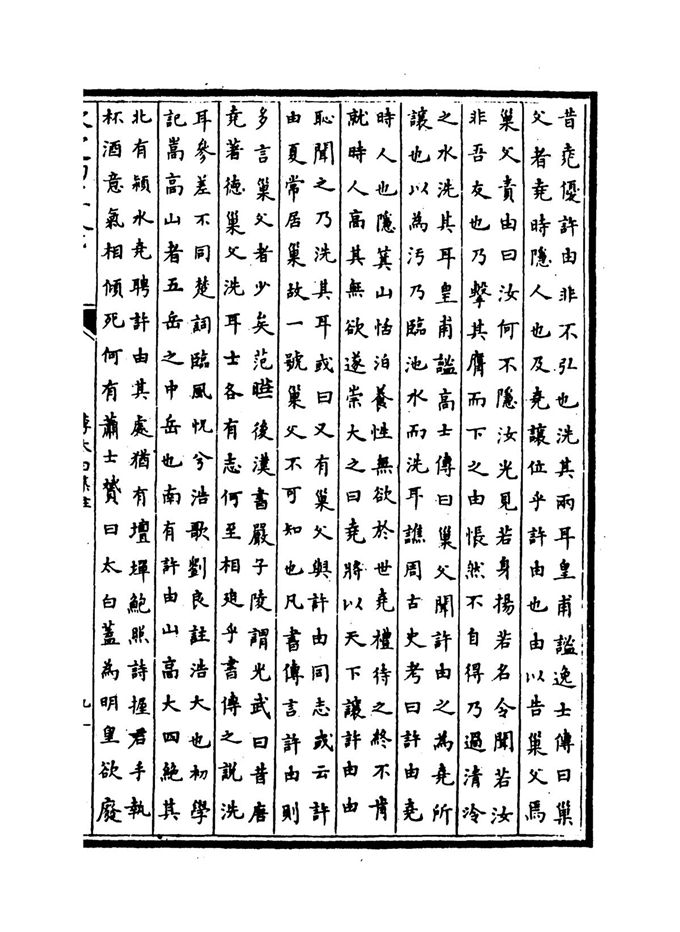 昔堯優許由非不弘也洗其兩耳皇甫謐逸士傳曰巢
父者堯時隱人也及堯讓位乎許由也由以告巢父焉
巢父責由曰汝何不隱汝光見若身揚若名令聞若汝
非吾友也乃擊其膺而下之由悵然不自得乃過清冷
之水洗其耳皇甫謐高士傳曰巢父聞許由之為堯所
讓也以為污乃臨池水而洗耳譙周古史考曰許由堯
時人也隱箕山恬泊養性無欲於世堯禮待之終不肯
就時人高其無欲遂崇大之曰堯將以天下讓許由由
恥聞之乃洗其耳或曰又有巢父與許由同志或云許
由夏常居巢故一號巢父不可知也凡書傳言許由則
多言巢父者少矣范曄後漢書嚴子陵謂光武曰昔唐
堯著德巢父洗耳士各有志何至相廹乎書傳之說洗
耳參差不同楚詞臨風怳兮浩歌劉良註浩大也初學
記嵩高山者五岳之中岳也南有許由山高大四絶其
北有潁水堯聘許由其處猶有壇墠鮑照詩握君手執
杯酒意氣相傾死何有蕭士贇曰太白蓋為明皇欲廢